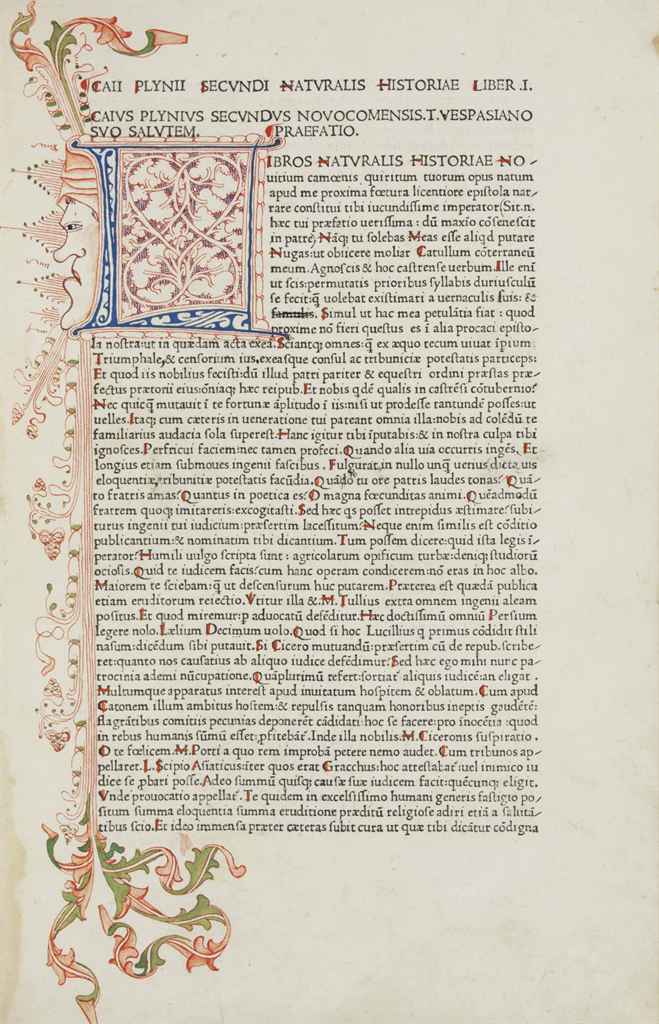 CAII PLYNII SECVNDI NATVRALIS HISTORIAE LIBER .I.
CAIVS PLYNIVS SECVNDVS NOVOCOMENSIS.T.VESPASIANO
SVO SALVTEM. PRAEFATIO.
LIBROS NATVRALIS HISTORIAE NO-
uitium camœnis quiritum tuorum opus natum
apud me proxima fœtura licentiore epistola nar-
rare constitui tibi iucundissime imperator.Sit.n.
hæc tui præfatio uerissima : dū maxīo cōsenescit
in patre. Nāq; tu solebas Meas esse aliqd putare
Nugas:ut obiicere moliar Catullum cōterraneū
meum. Agnoscis & hoc castrense uerbum.Ille enī
ut scis:permutatis prioribus syllabis duriusculū
se fecit:q̄ uolebat existimari a uernaculis suis: &
famulis. Simul ut hac mea petulātia fiat : quod
proxime nō fieri questus es ī alia procaci episto-
la nostra:ut in quædam acta exea. Sciantq; omnes:q̄ ex æquo tecum uiuat īpium.
Triumphale,& censorium ius,exeasque consul ac tribuniciæ potestatis particeps:
Et quod iis nobilius fecisti:dū illud patri pariter & equestri ordini præstas præ-
fectus prætorii eius:oniaq; hæc reipub.Et nobis qdē qualis in castrēsi cōtubernio?
Nec quicq̄ mutauit ī te fortunæ āplitudo ī iis:nisi ut prodesse tantundē posses:ut
uelles.Itaq; cum cæteris in ueneratione tui pateant omnia illa:nobis ad colēdū te
familiarius audacia sola superest.Hanc igitur tibi īputabis:& in nostra culpa tibi
ignosces.Perfricui faciem:nec tamen profeci.Quando alia uia occurris ingēs. Et
longius etiam submoues ingenii fascibus . Fulgurat in nullo unq̄ uerius dicta uis
eloquentiæ,tribunitiæ potestatis facūdia. Quādo tu ore patris laudes tonas? Quā-
to fratris amas? Quantus in poetica es? O magna fœcunditas animi. Quēadmodū
fratrem quoq; imitareris:excogitasti. Sed hæc qs posset intrepidus æstimare? subi-
turus ingenii tui iudicium:præsertim lacessitum? Neque enim similis est cōditio
publicantium:& nominatim tibi dicantium. Tum possem dicere:quid ista legis ī-
perator? Humili uulgo scripta sunt : agricolarum opificum turbæ:deniq; studiorū
ociosis.Quid te iudicem facis?cum hanc operam condicerem:nō eras in hoc albo.
Maiorem te sciebam:q̄ ut descensurum huc putarem.Præterea est quædā publica
etiam eruditorum reiectio.Vtitur illa &.M.Tullius extra omnem ingenii aleam
positus.Et quod miremur:p aduocatū defēditur.Hæc doctissimū omniū Persium
legere nolo.Lælium Decimum uolo.Quod si hoc Lucillius q primus cōdidit stili
nasum:dicēdum sibi putauit.Si Cicero mutuandū:præsertim cū de repub.scribe-
ret:quanto nos causatius ab aliquo iudice defēdimur? Sed hæc ego mihi nunc pa-
trocinia ademi nūcupatione.Quāplurimū refert:sortiat̄ aliquis iudicē:an eligat .
Multumque apparatus interest apud inuitatum hospitem & oblatum. Cum apud
Catonem illum ambitus hostem:& repulsis tanquam honoribus ineptis gaudētē:
flagrātibus comitiis pecunias deponerēt cādidati:hoc se facere:pro inocētia :quod
in rebus humanis sūmū esset:pfitebat̄.Inde illa nobilis.M.Ciceronis suspiratio .
O te fœlicem.M.Porti a quo rem improbā petere nemo audet. Cum tribunos ap-
pellaret.L.Scipio Asiaticus:iter quos erat Gracchus:hoc attestabat̄:uel inimico iu
dice se pbari posse.Adeo summū quisq; causæ suæ iudicem facit:quēcunq; eligit.
Vnde prouocatio appellat̄.Te quidem in excelsissimo humani generis fastigio po-
situm summa eloquentia summa eruditione præditū religiose adiri etiā a salutā-
tibus scio.Et ideo immensa præter cæteras subit cura ut quæ tibi dicātur cōdigna